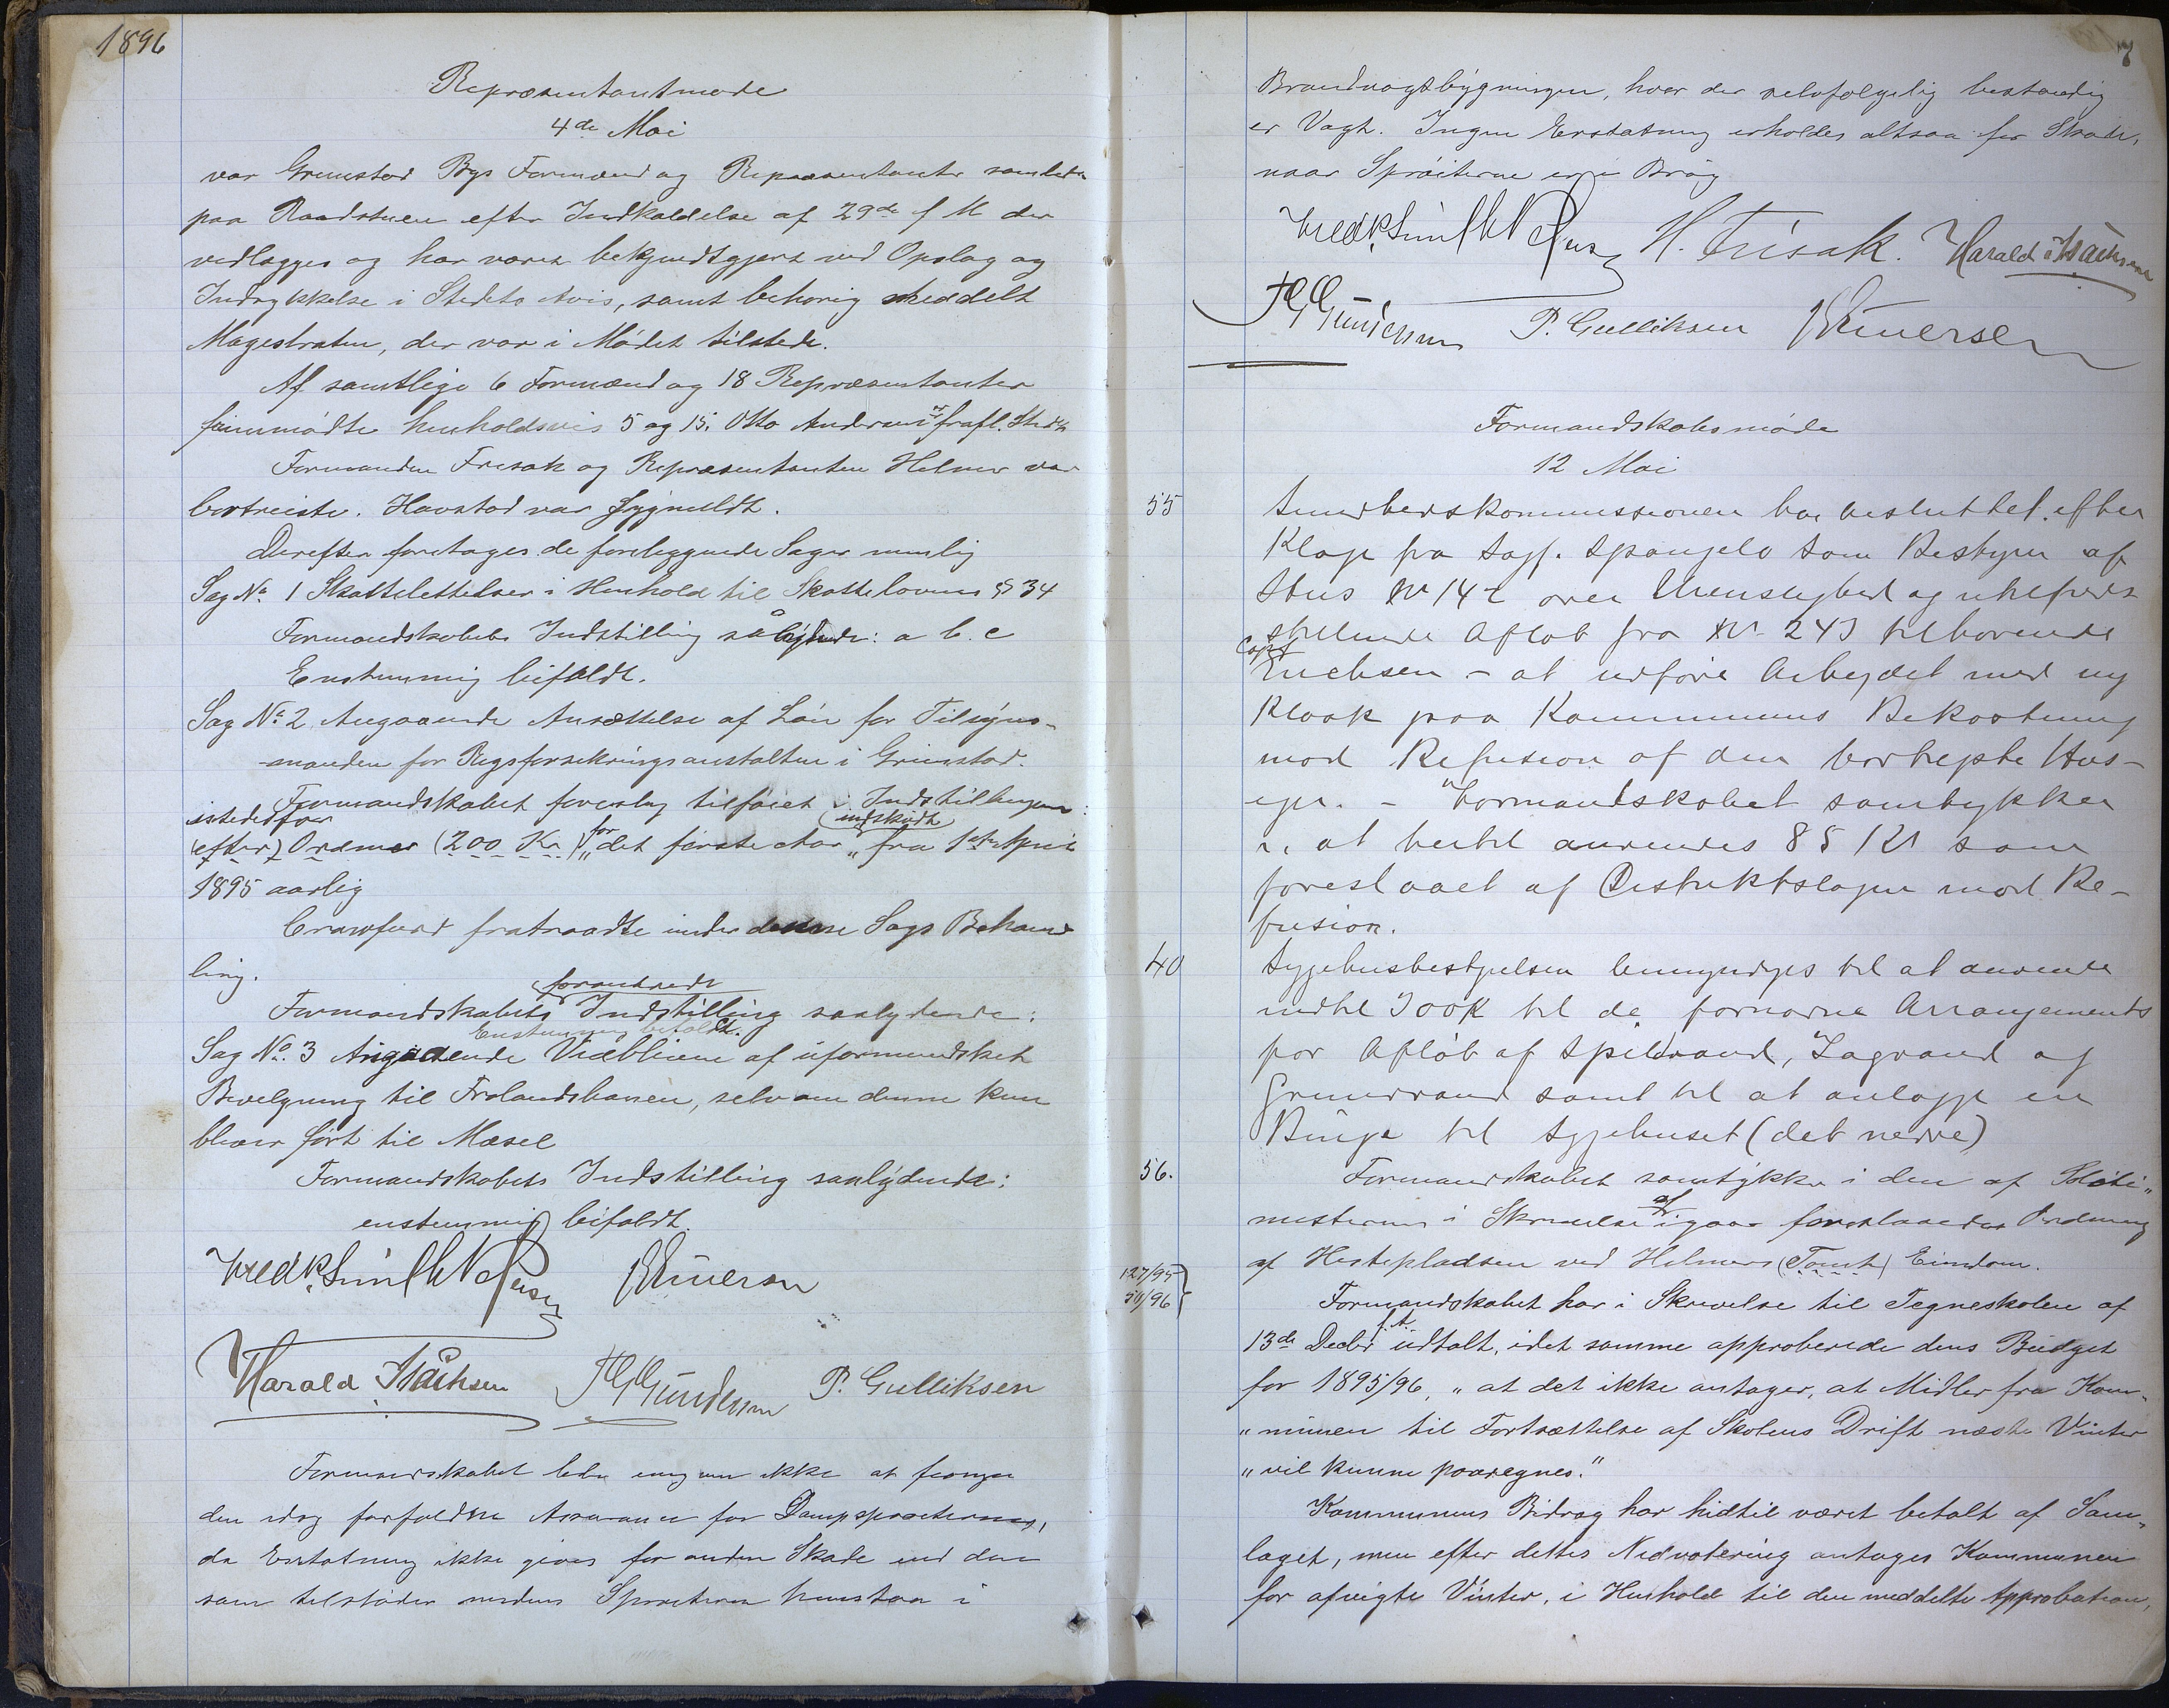 1896
Repræsentantmøde
4de Mai
var Grimstad Bys Formænd og Repræsentanter samlede
paa Raadstuen efter Indkaldelse af 29de f M der
vedlægges og har været bekjendtgjort ved Opslag og
Indrykkelse i Stedets Avis, samt behørig meddelt
Magistraten, der var i Mødet tilstede.
Af samtlige 6 Formænd og 18 Repræsentanter
fremmødte henholdsvis 5 og 15. Otto Andersen er frafl. Stedet
Formanden Frisak og Repræsentanten Helmer var
bortreiste. Havstad var sygmeldt.
Derefter foretages de foreliggende Sager nemlig
Sag No. 1 Skattelettelser i Henhold til Skattelovens § 34
Formandskabets Indstilling sålydende: a b. c
Enstemmig bifaldt.
Sag No. 2 Angaaende Ansættelse af Løn for Tilsyns-
-manden for Rigsforsikringsanstalten i Grimstad.
Formandskabet foreslog tilføiet i Indstillingen:
istedetfor indskudt
(efter) Ordene (200 Kr) "for det første Aar" fra 1ste April
1895 aarlig
Crawfurd fratraadte under denne Sags Behand
ling.
forandrede
Formandskabets Indstilling saalydende:
Enstemmig bifaldt.
Sag No. 3 Angaaende Vedbliven af uformindsket
Bevilgning til Frolandsbanen, selv om denne kun
bliver ført til Mæsel
Formandskabets Indstilling saalydende:
enstemmig bifaldt.
Fredk Smith Petersen
Harald Isachsen P. Gulliksen
Formandskabet blev enig om ikke at fornye
den idag forfaldne Assurance for Dampsprøiterne,
da Erstatning ikke gives for anden Skade end den
som tilstøder medens Sprøiterne henstaa i
7
Brandvagtsbygningen, hvor der selvfølgelig bestandig
er Vagt. Ingen Erstatning erholdes altsaa for Skade,
naar Sprøiterne er i Brug
Fredk Smith Petersen H. Frisak. Harald Isachsen
P. Gulliksen
Formandskabsmøde
12 Mai
55 Sundhedskommissionen har besluttet efter
Klage fra Sagf. Spangelo som Bestyrer af
Hus No 142 over Urenslighed og utilfreds
stillende Afløb fra No 243 tilhørende
Capt
Erichsen - at udføre Arbeidet med ny
Kloak paa Kommunens Bekostning
mod Refusion af den bortreiste Hus-
eier. - Formandskabet samtykker
i, at hertil anvendes 85 Kr som
foreslaaet af Distriktslægen mod Re-
fusion.
40 Sygehusbestyrelsen bemyndiges til at anvende
indtil 300 K til de fornødne Arrangements
for Afløb af Spildvand, Tagvand og
Grundvand samt til at anlægge en
til Sygehuset (det nedre)
56. Formandskabet samtykker i den af
i Skrivelse af igaar foreslaaede Ordning
af Hestepladsen ved Helmers (Tomt) Eiendom.
127/95
51/96
Formandskabet har i Skrivelse til Tegneskolen af
13de Decbr f. A. udtalt, idet samme approberede dens Budget
for 1895/96, "at det ikke antager, at Midler fra Kom-
"munen til Fortsættelse af Skolens Drift næste Vinter
"vil kunne paaregnes."
Kommunens Bidrag har hidtil været betalt af Sam-
laget, men efter dettes Nedvotering antages Kommunen
for afvigte Vinter, i Henhold til den meddelte Approbation,